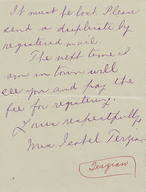 It must be lost. Please
send a duplicate by
registered mail.
The next time I
am in town will
see you and pay the
fee for registering.
Yours respectfully,
Mrs. Isabel Terzian
Terzian